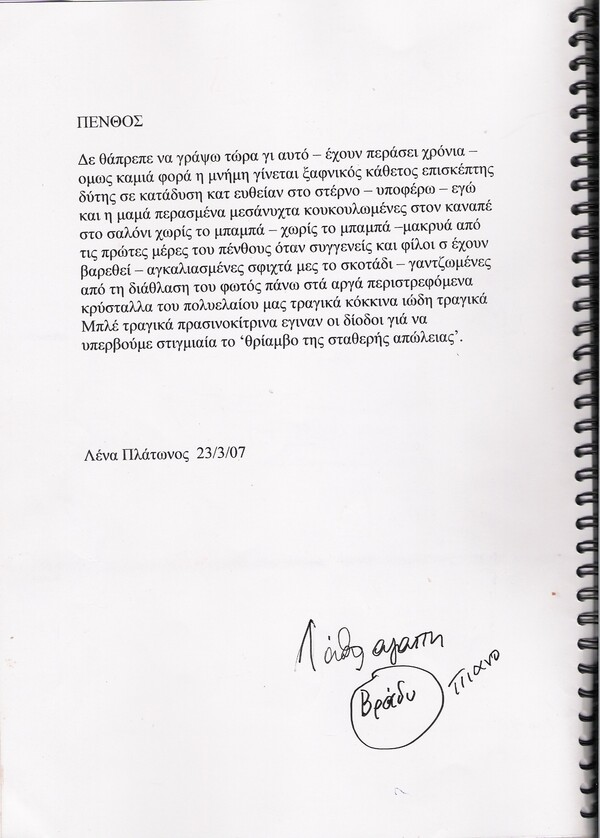 ΠΕΝΘΟΣ
Δε θάπρεπε να γράψω τώρα γι αυτό – έχουν περάσει χρόνια –
ομως καμιά φορά η μνήμη γίνεται ξαφνικός κάθετος επισκέπτης
δύτης σε κατάδυση κατ ευθείαν στο στέρνο – υποφέρω – εγώ
και η μαμά περασμένα μεσάνυχτα κουκουλωμένες στον καναπέ
στο σαλόνι χωρίς το μπαμπά – χωρίς το μπαμπά –μακρυά από
τις πρώτες μέρες του πένθους όταν συγγενείς και φίλοι σ έχουν
βαρεθεί – αγκαλιασμένες σφιχτά μες το σκοτάδι – γαντζωμένες
από τη διάθλαση του φωτός πάνω στά αργά περιστρεφόμενα
κρύσταλλα του πολυελαίου μας τραγικά κόκκινα ιώδη τραγικά
Μπλέ τραγικά πρασινοκίτρινα εγιναν οι δίοδοι γιά να
υπερβούμε στιγμιαία το ‘θρίαμβο της σταθερής απώλειας’.
Λένα Πλάτωνος 23/3/07
αγαπη
Βράδυ
πιανο